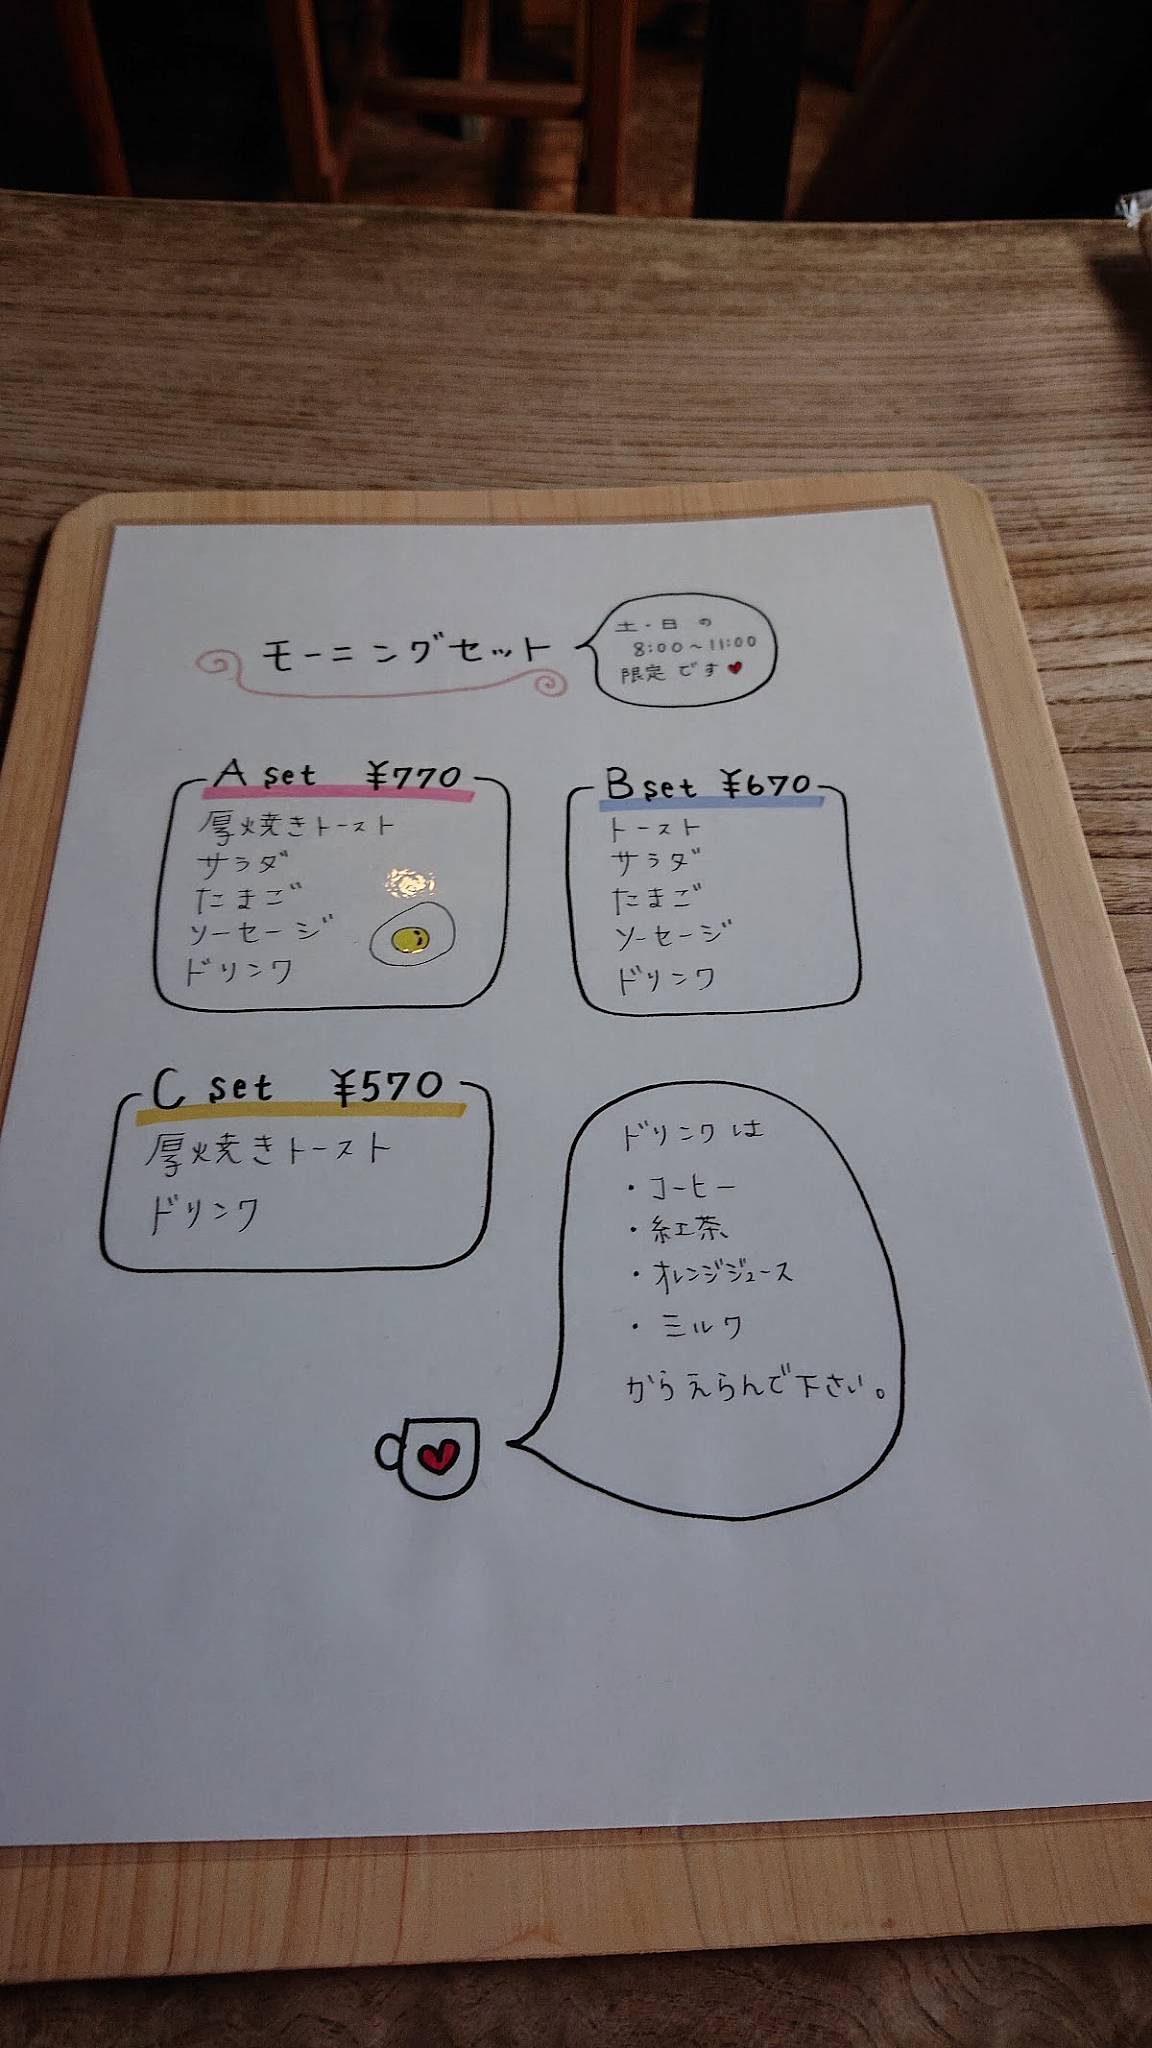 モーニングセット
土・日の
8:00～11:00
限定です
A set ¥770
厚焼きトースト
サラダ
たまご
ソーセージ
ドリンク
B set ¥670
トースト
サラダ
たまご
ソーセージ
ドリンク
C set ¥570
厚焼きトースト
ドリンク
ドリンクは
・コーヒー
・紅茶
・オレンジジュース
・ミルク
からえらんで下さい。